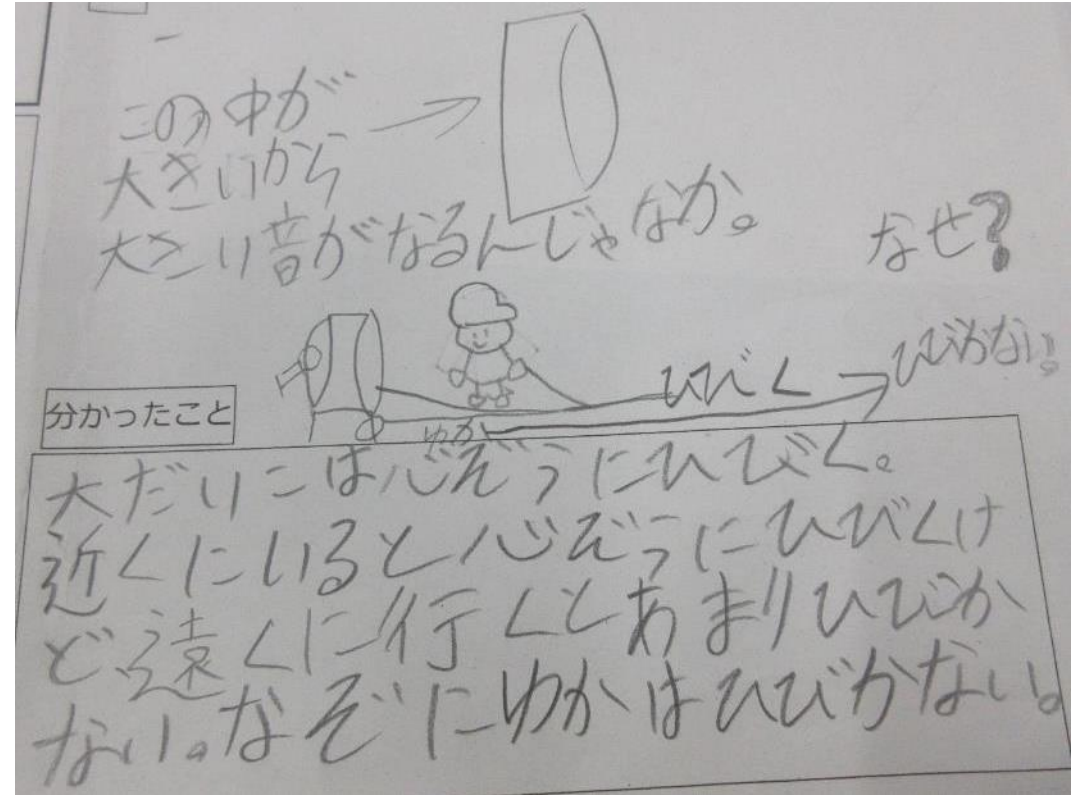 この中が…
大きいから
大きい音がなるんじゃなか。
なぜ?
ひびく
ひびかない。
ゆか
分かったこと
大だいこは心ぞうにひびく。
近くにいると心ぞうにひびくけ
ど遠くに行くとあまりひびか
ない。なぞにゆかはひびかない。